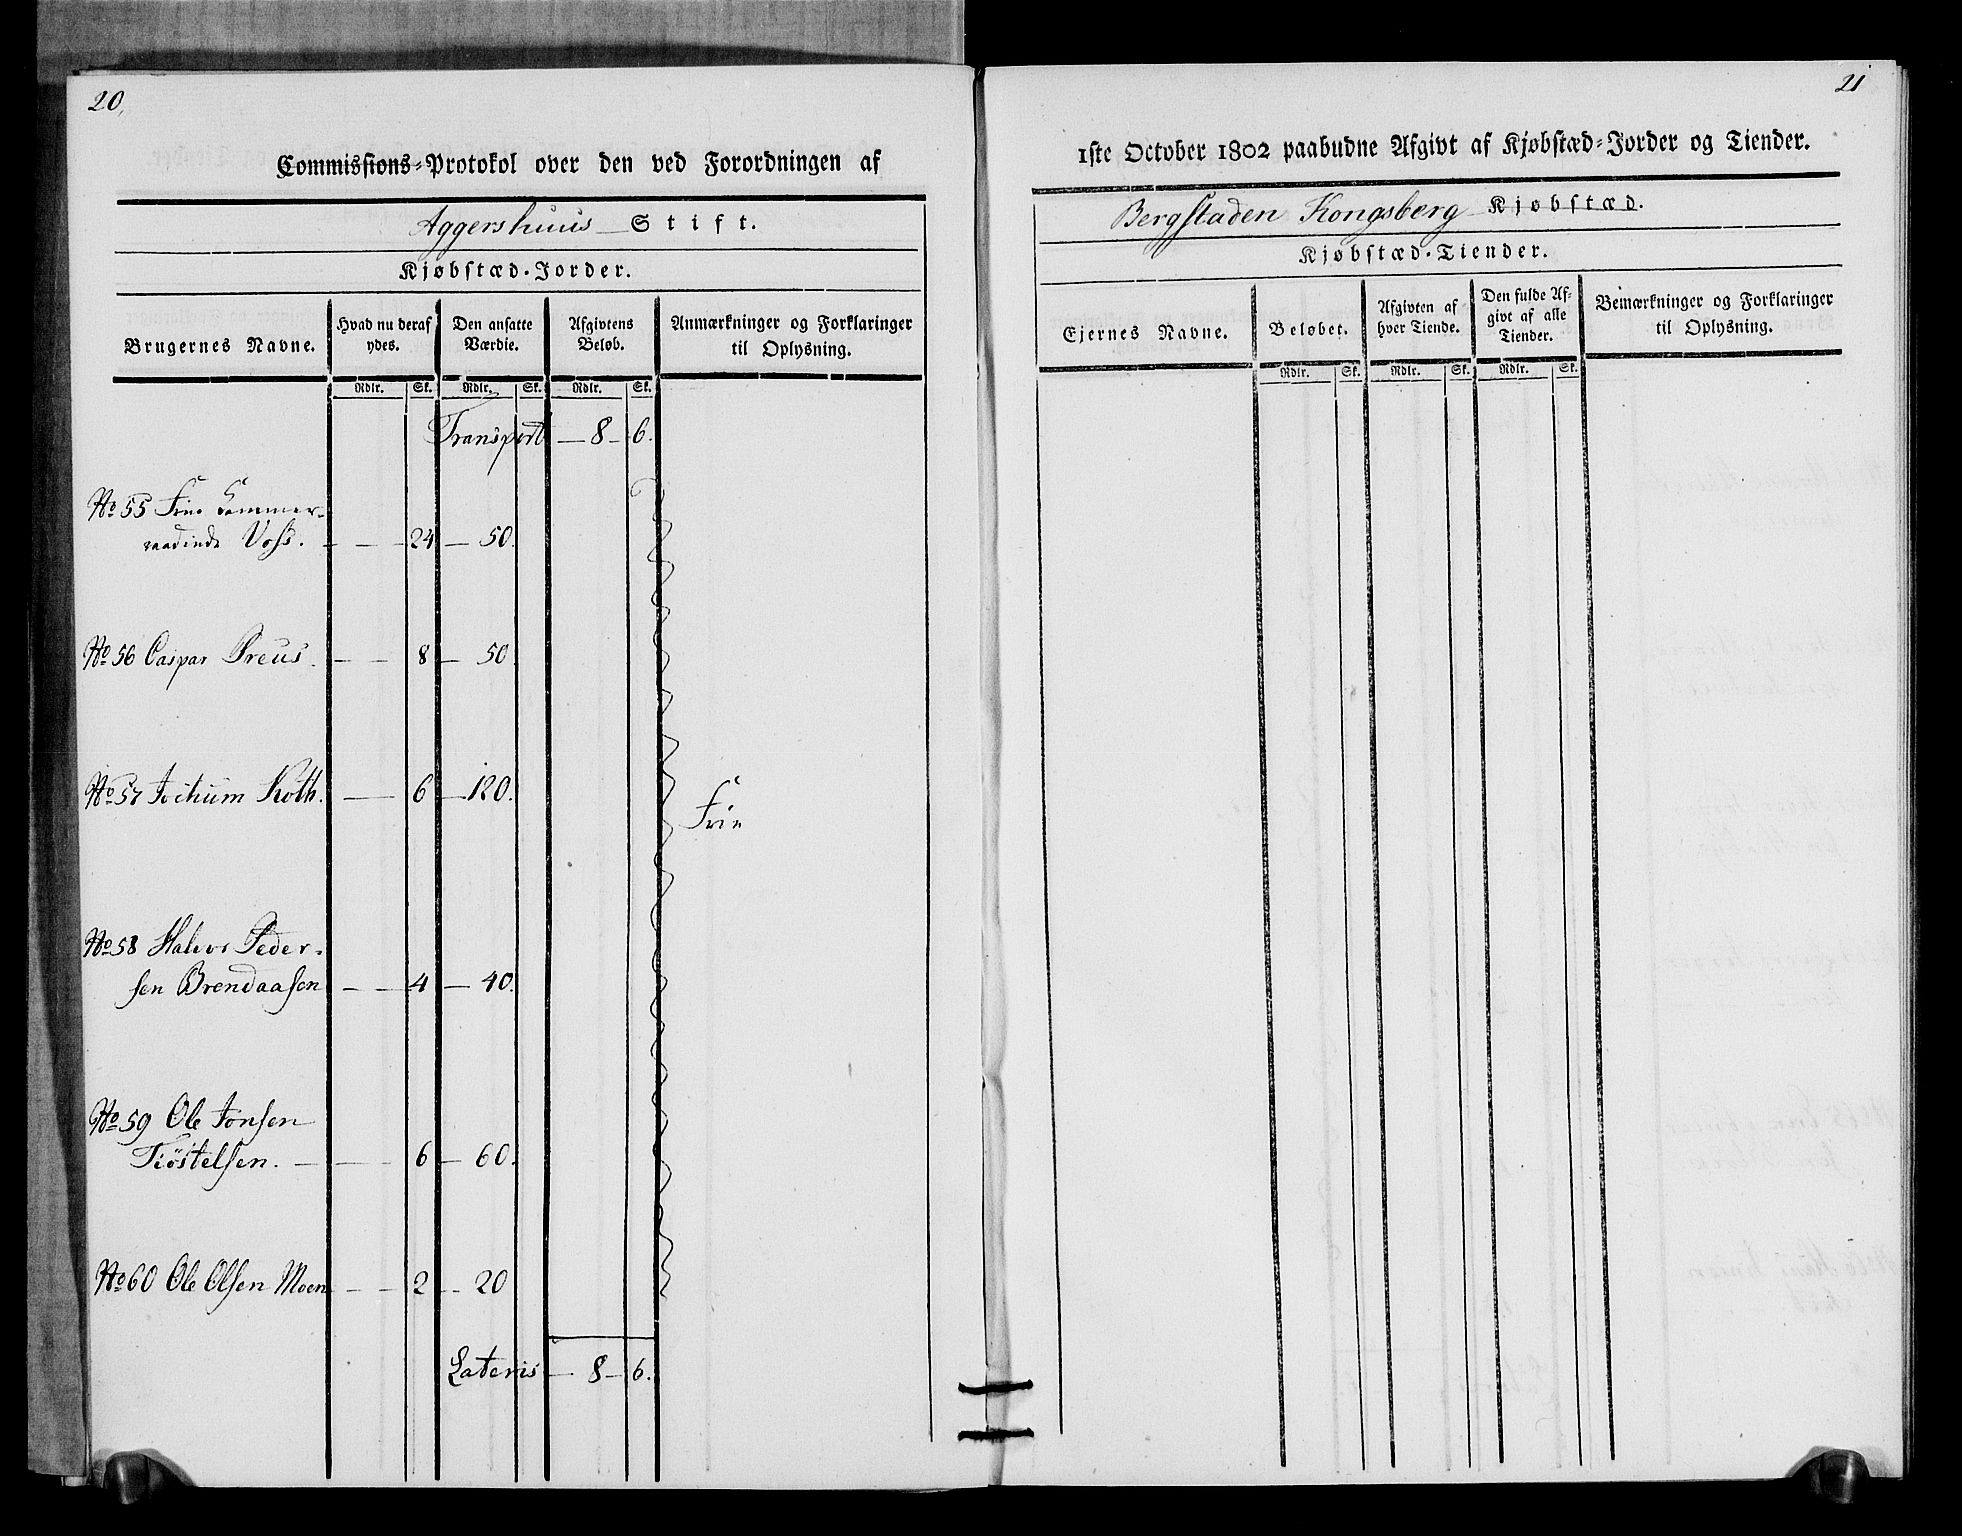 20,
Commissions-Protokol over den ved Forordningen af
Aggershuus Stift.
Kjøbstæd-Jorder.
Brugernes Navne.
Hvad nu deraf
ydes.
Den ansatte
Værdie.
Afgivtens
Beløb.
Anmærkninger og Forklaringer
til Oplysning.
Rdlr. Sk. Rdlr. Sk. Rdlr. Sk.
Transport — 8 — 6.
No 55 Frue Commer-
raadinde Voss. — — 24 — 50.
No 56 Caspar Preus. — — 8 — 50
No 57 Jochum Koth. — 6 — 120.
Frie
No 58 Halvor Peder-
sen Brendaasen — — 4 — 40.
No 59 Ole Jonsen
Tiøstelsen. — — 6 — 60.
No 60 Ole Olsen Moen — — 2 — 20
Lateris — 8 — 6.
21
1ste October 1802 paabudne Afgivt af Kjøbstæd-Jorder og Tiender.
Bergstaden Kongsberg Kjøbstæd.
Kjøbstæd-Tiender.
Ejernes Navne.
Beløbet.
Afgivten af
hver Tiende.
Den fulde Af-
givt af alle
Tiender.
Bemærkninger og Forklaringer
til Oplysning.
Rdlr. Sk. Rdlr. Sk. Rdlr. Sk.